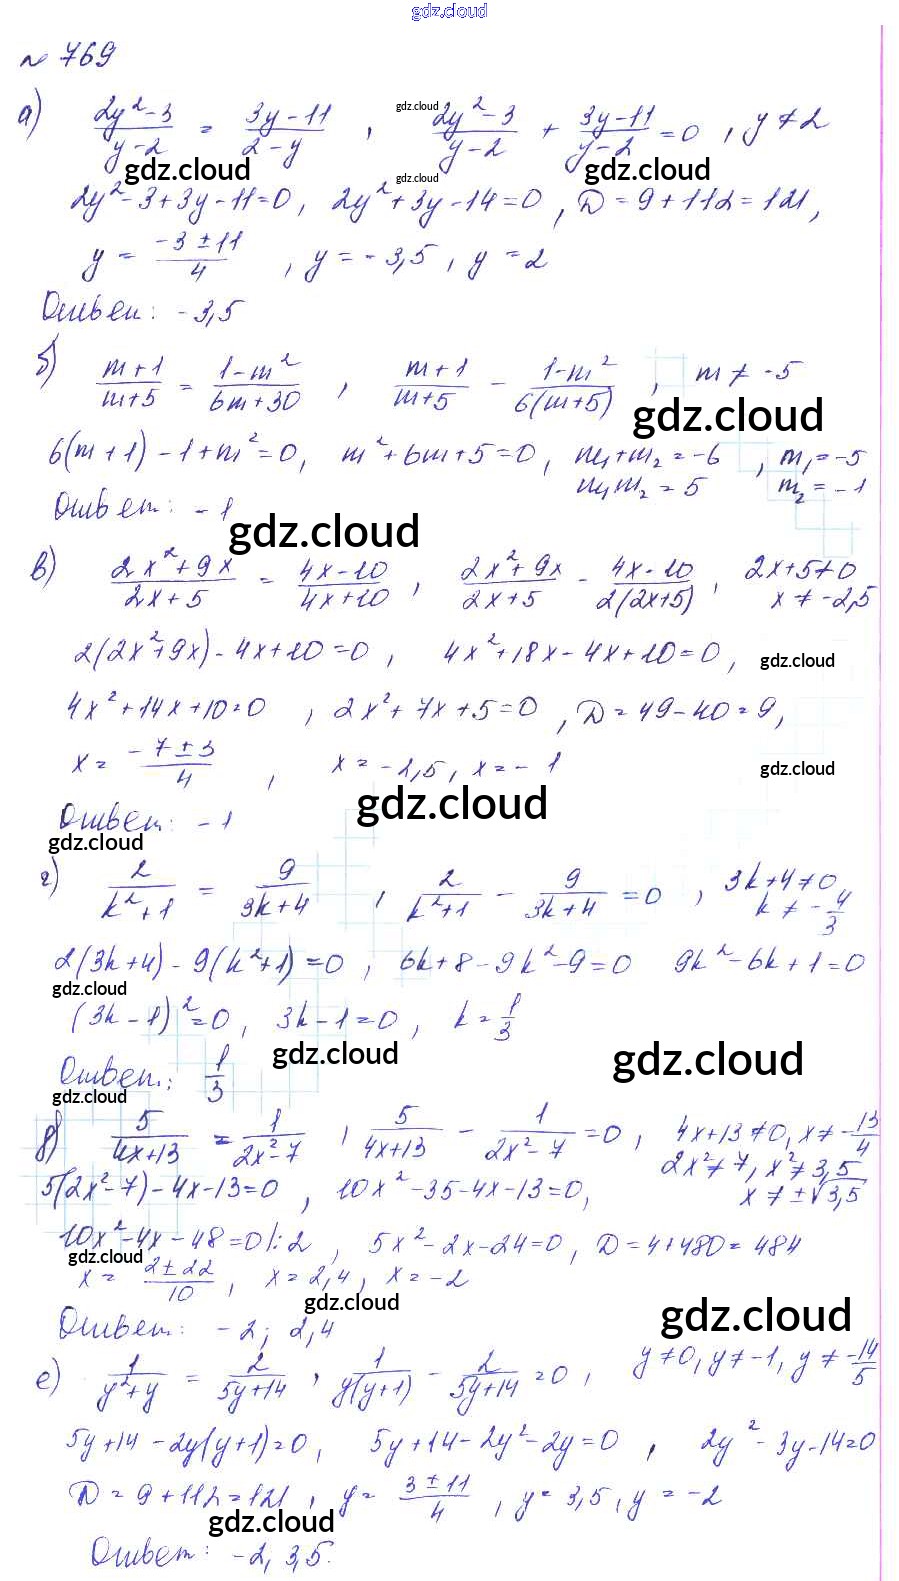 gdz.cloud
№ 769
а) (2y²-3)/(y-2) = (3y-11)/(2-y), gdz.cloud (2y²-3)/(y-2) + (3y-11)/(y-2) = 0, y ≠ 2
gdz.cloud gdz.cloud gdz.cloud
2y²-3+3y-11=0, 2y²+3y-14=0, D=9+112=121,
y = (-3±11)/4, y = -3,5, y = 2
Ответ: -3,5
б) (m+1)/(m+5) = (1-m²)/(6m+30), (m+1)/(m+5) - (1-m²)/(6(m+5)), m ≠ -5
gdz.cloud
6(m+1)-1+m²=0, m²+6m+5=0, m₁+m₂=-6, m₁=-5
m₁m₂=5 m₂=-1
Ответ: -1
gdz.cloud
в) (2x²+9x)/(2x+5) = (4x-10)/(4x+10), (2x²+9x)/(2x+5) - (4x-10)/(2(2x+5)), 2x+5≠0
x ≠ -2,5
2(2x²+9x)-4x+10=0, 4x²+18x-4x+10=0, gdz.cloud
4x²+14x+10=0, 2x²+7x+5=0, D=49-40=9,
x = (-7±3)/4, x = -2,5, x = -1
gdz.cloud
gdz.cloud
Ответ: -1
gdz.cloud
г) 2/(k²+1) = 9/(3k+4), 2/(k²+1) - 9/(3k+4) = 0, 3k+4≠0
k ≠ -4/3
2(3k+4)-9(k²+1)=0, 6k+8-9k²-9=0 9k²-6k+1=0
gdz.cloud
(3k-1)²=0, 3k-1=0, k=1/3
gdz.cloud gdz.cloud
Ответ: 1/3
gdz.cloud
д) 5/(4x+13) = 1/(2x²-7), 5/(4x+13) - 1/(2x²-7) = 0, 4x+13≠0, x≠-13/4
2x²≠7, x²≠3,5
5(2x²-7)-4x-13=0, 10x²-35-4x-13=0, x≠±√3,5
10x²-4x-48=0|:2, 5x²-2x-24=0, D=4+480=484
gdz.cloud
x = (2±22)/10, x = 2,4, x = -2
gdz.cloud gdz.cloud
Ответ: -2; 2,4
е) 1/(y²+y) = 2/(5y+14), 1/(y(y+1)) - 2/(5y+14) = 0, y≠0, y≠-1, y≠-14/5
5y+14-2y(y+1)=0, 5y+14-2y²-2y=0, 2y²-3y-14=0
D=9+112=121, y = (3±11)/4, y = 3,5, y = -2
gdz.cloud
Ответ: -2, 3,5.